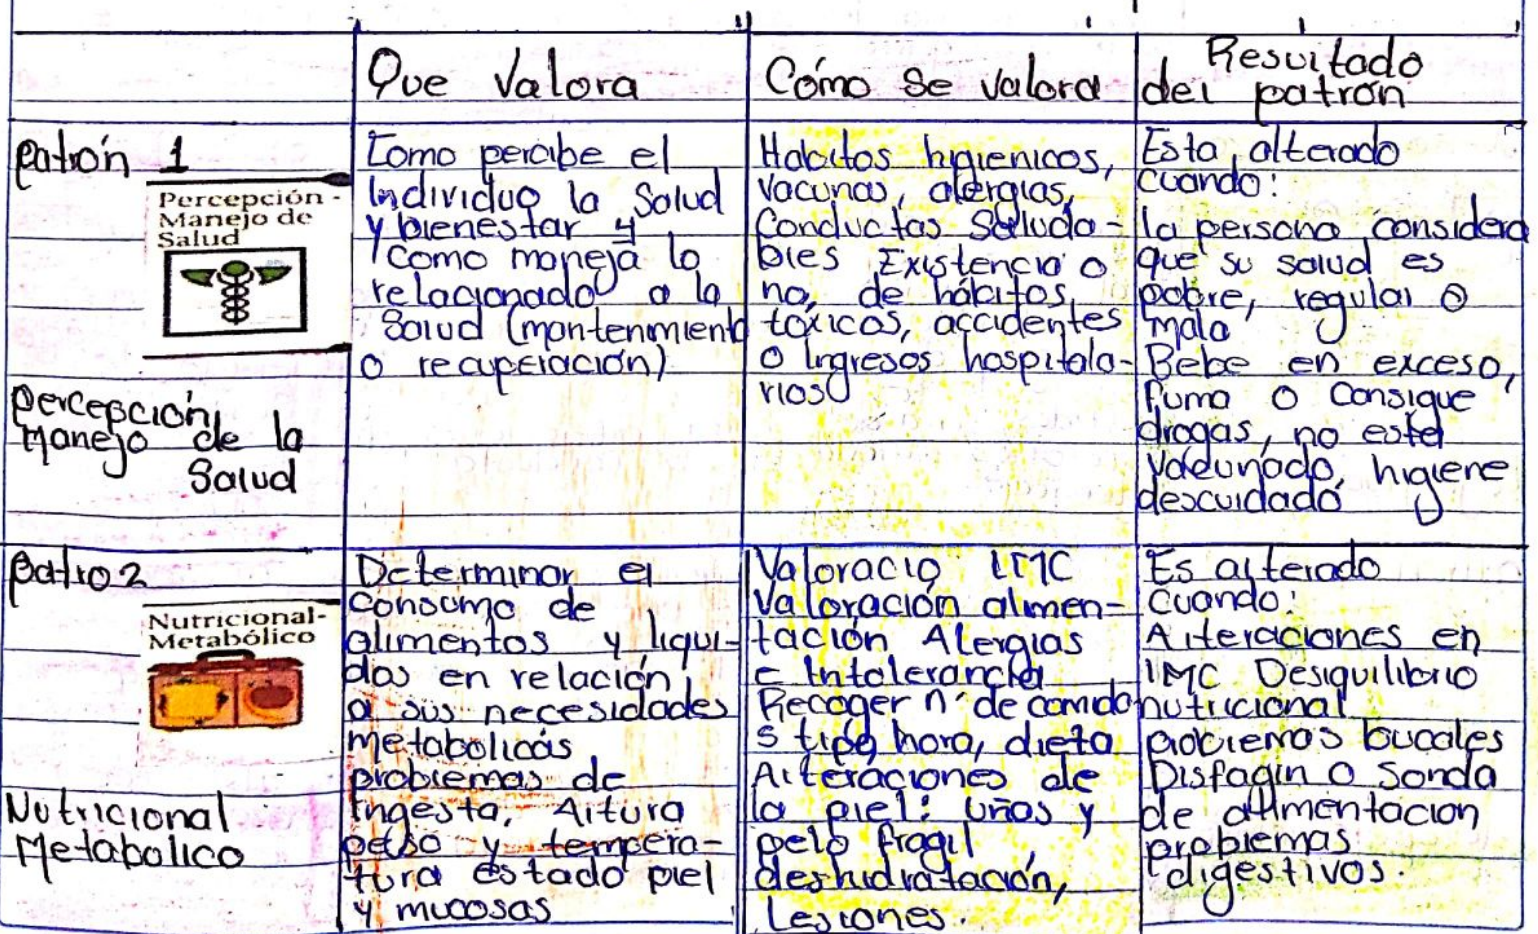 Que Valora
Cómo se valora
Resultado
del patrón
patrón 1
Percepción -
Manejo de
Salud
Percepción
Manejo de la
Salud
Como percibe el
Individuo la Salud
y bienestar y
Como maneja lo
relacionado a la
Salud (mantenimiento
o recuperación)
Habitos higienicos,
vacunas, alergias,
Conductas Saluda-
bles Existencia o
no, de hábitos,
tóxicos, accidentes
o Ingresos hospitala-
rios
Esta alterado
cuando:
la persona considera
que su salud es
pobre, regular o
mala
Bebe en exceso,
fuma o Consigue
drogas, no esta
vacunado, higiene
descuidado
Patro 2
Nutricional-
Metabólico
Nutricional
Metabolico
Determinar el
Consumo de
alimentos y liqui-
dos en relación
a sus necesidades
metabolicas
problemas de
Ingesta, Altura
peso y tempera-
tura estado piel
y mucosas
Valoracio IMC
Valoración alimen-
tación Alergias
e Intolerancia
Recoger nº de comida
s tipo, hora, dieta
Alteraciones de
la piel: Uñas y
pelo fragil
deshidratación,
Lesiones.
Es alterado
Cuando:
Alteraciones en
IMC Desiquilibrio
nutricional
problemas bucales
Disfagin o Sonda
de alimentacion
problemas
digestivos.